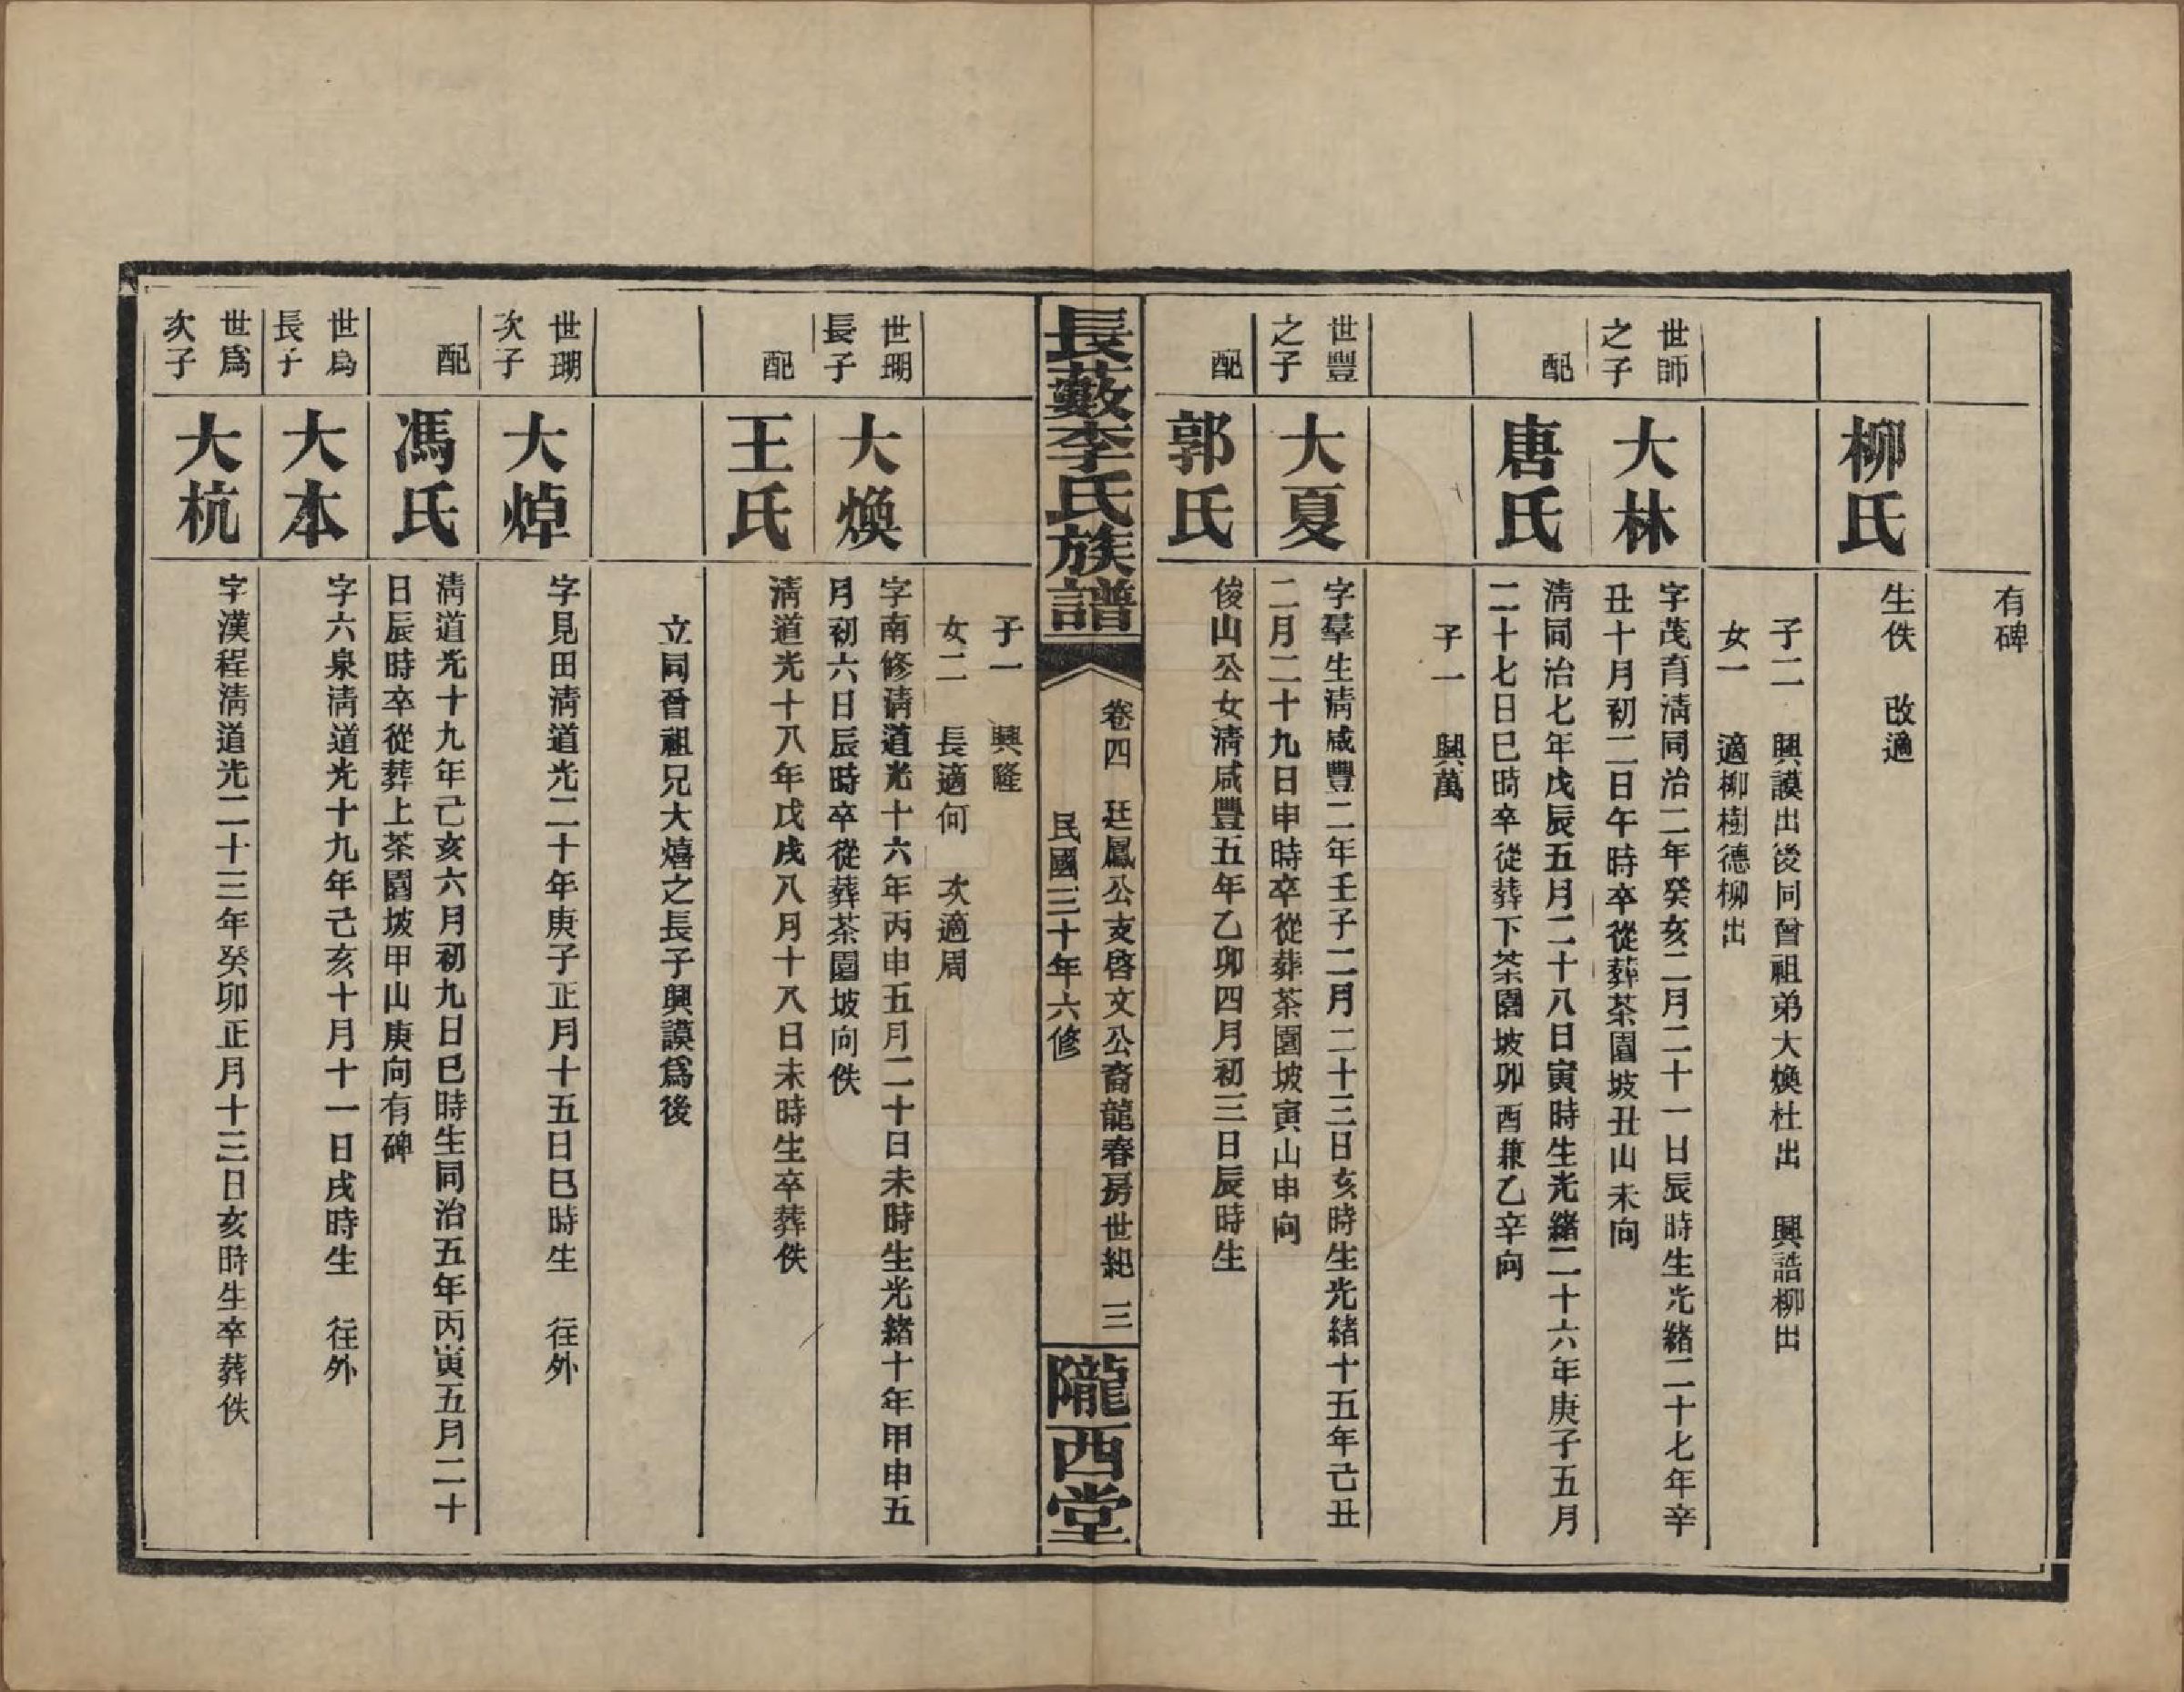 有碑
柳氏
生佚　改適
子二　興謨出後同曾祖弟大煥杜出　興誥柳出
女一　適柳樹德柳出
世師
之子
大林
字茂育淸同治二年癸亥二月二十一日辰時生光緒二十七年辛
丑十月初二日午時卒從葬茶園坡丑山未向
配
唐氏
淸同治七年戊辰五月二十八日寅時生光緒二十六年庚子五月
二十七日巳時卒從葬下茶園坡卯酉兼乙辛向
子一　興萬
世豐
之子
大夏
字羣生淸咸豐二年壬子二月二十三日亥時生光緒十五年己丑
二月二十九日申時卒從葬茶園坡寅山申向
配
郭氏
俊山公女淸咸豐五年乙卯四月初三日辰時生
長藪李氏族譜
卷四　廷鳳公支啓文公裔龍春房世紀　三
民國三十年六修
隴西堂
子一　興隆
女二　長適何　次適周
世瑚
長子
大煥
字南修淸道光十六年丙申五月二十日未時生光緒十年甲申五
月初六日辰時卒從葬茶園坡向佚
配
王氏
淸道光十八年戊戌八月十八日未時生卒葬佚
立同曾祖兄大熺之長子興謨爲後
世瑚
次子
大焯
字見田淸道光二十年庚子正月十五日巳時生　往外
配
馮氏
淸道光十九年己亥六月初九日巳時生同治五年丙寅五月二十
日辰時卒從葬上茶園坡甲山庚向有碑
世爲
長子
大本
字六泉淸道光十九年己亥十月十一日戌時生　往外
世爲
次子
大杭
字漢程淸道光二十三年癸卯正月十三日亥時生卒葬佚